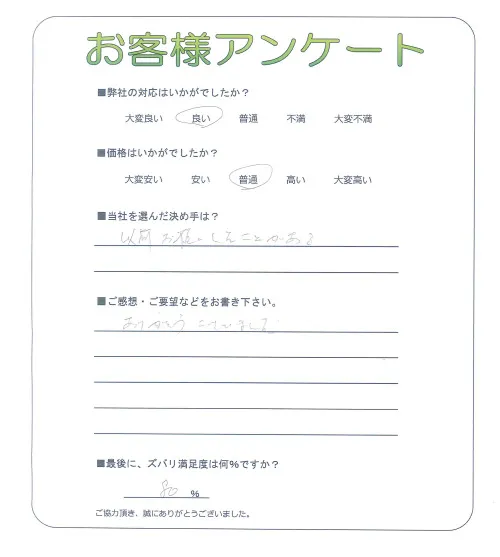 お客様アンケート
■弊社の対応はいかがでしたか?
大変良い 良い 普通 不満 大変不満
■価格はいかがでしたか?
大変安い 安い 普通 高い 大変高い
■当社を選んだ決め手は?
以前お願いしたことがある
■ご感想・ご要望などをお書き下さい。
ありがとうございました
■最後に、ズバリ満足度は何%ですか?
80 %
ご協力頂き、誠にありがとうございました。